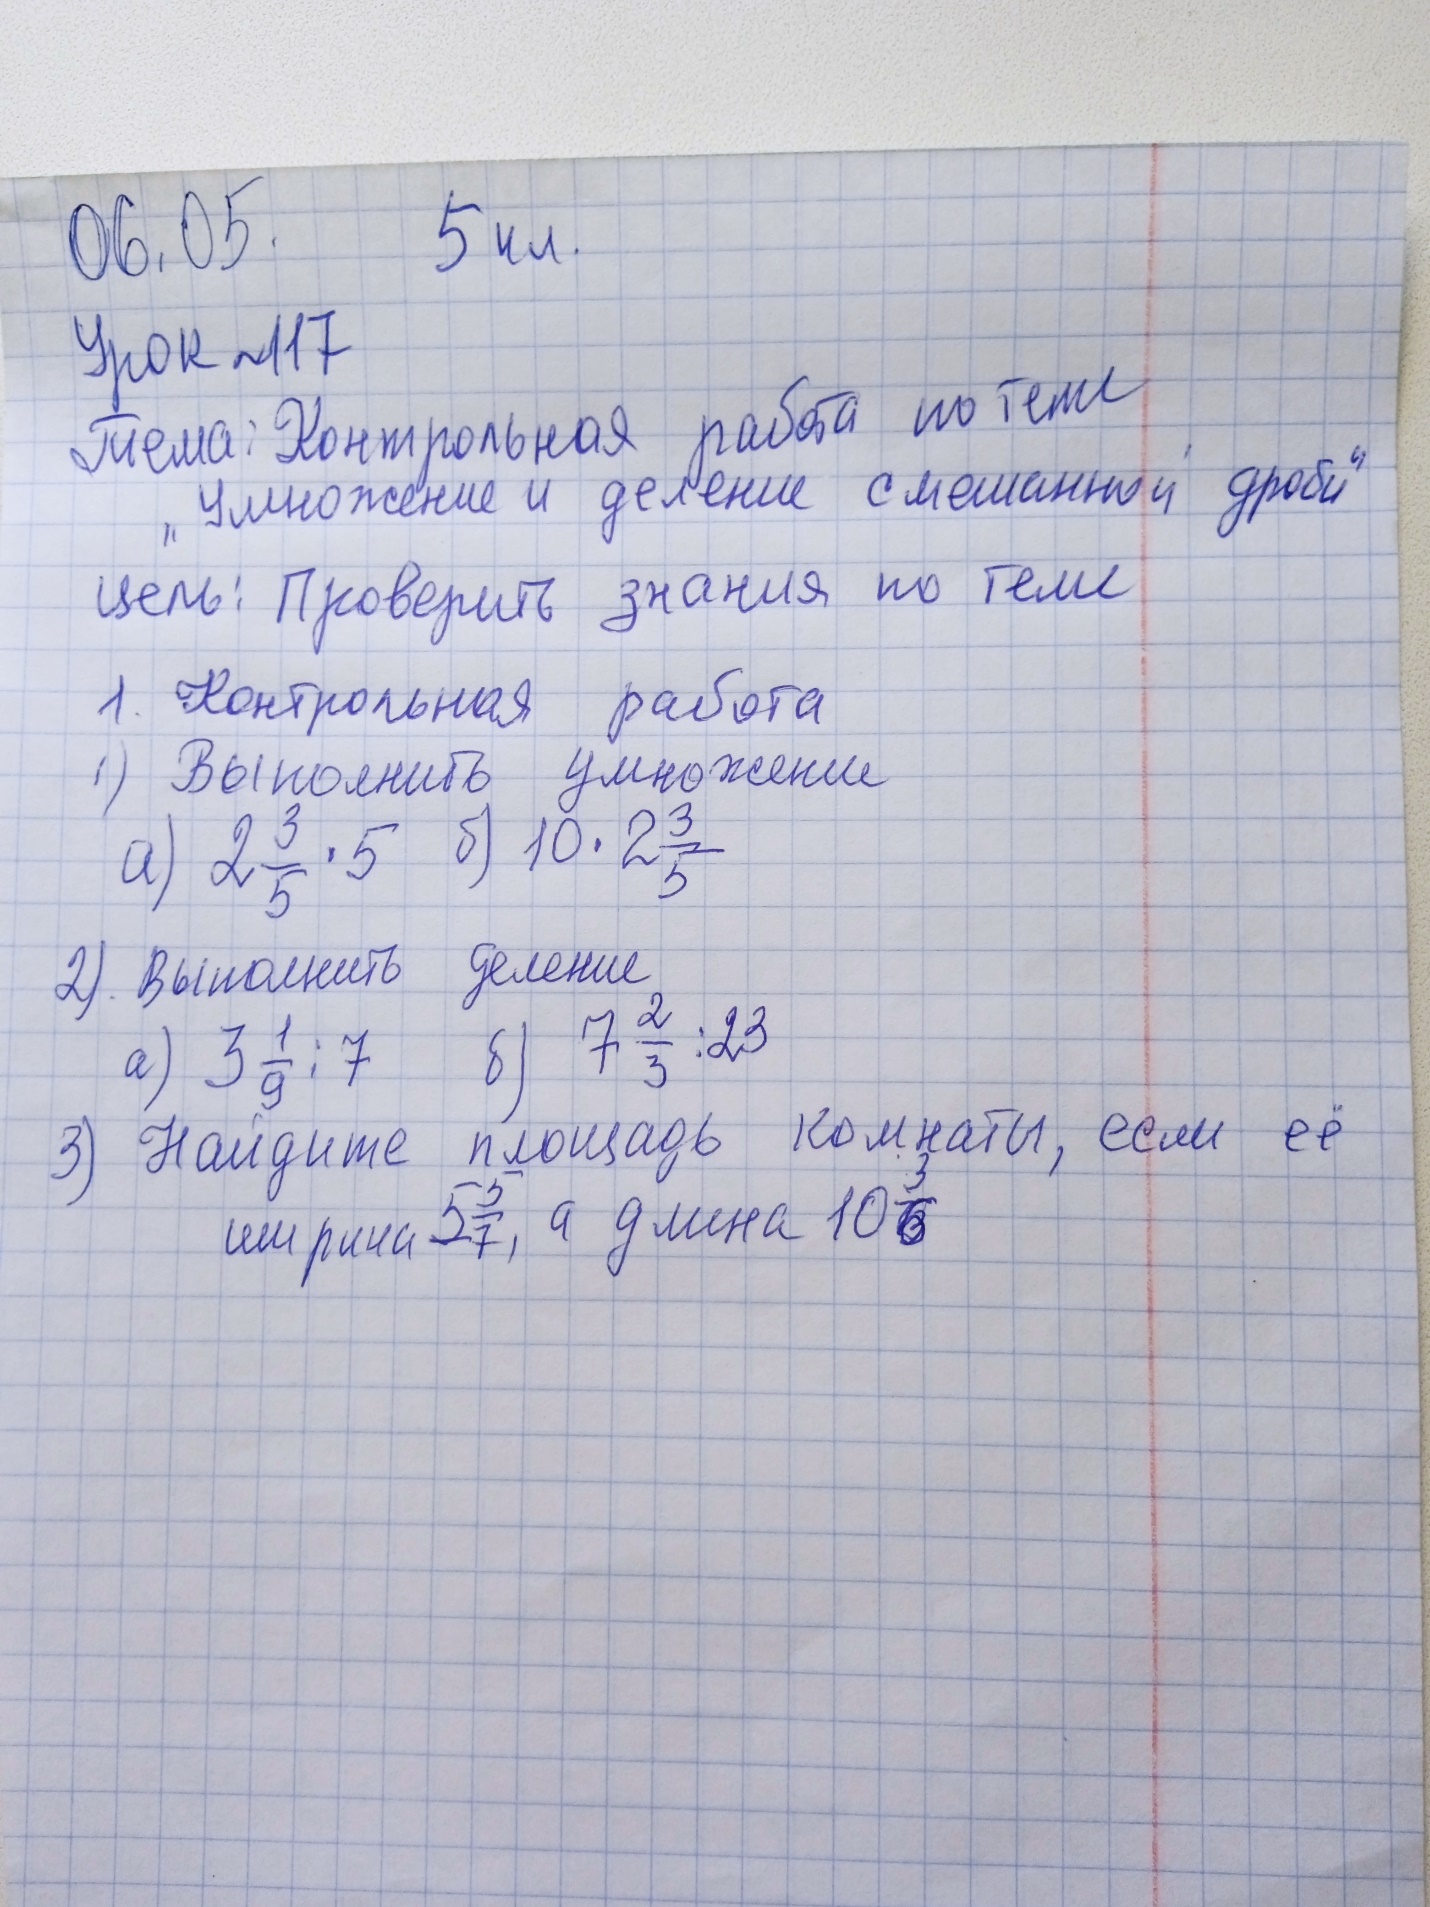 06.05. 5 кл.
Урок №117
Тема: Контрольная работа по теме
„Умножение и деление смешанной дроби"
Цель: Проверить знания по теме
1. Контрольная работа
1) Выполнить умножение
а) 2 3/5 · 5 б) 10 · 2 3/5
2). Выполнить деление
а) 3 1/9 : 7 б) 7 2/3 : 23
3) Найдите площадь комнаты, если её
ширина 5 5/7, а длина 10